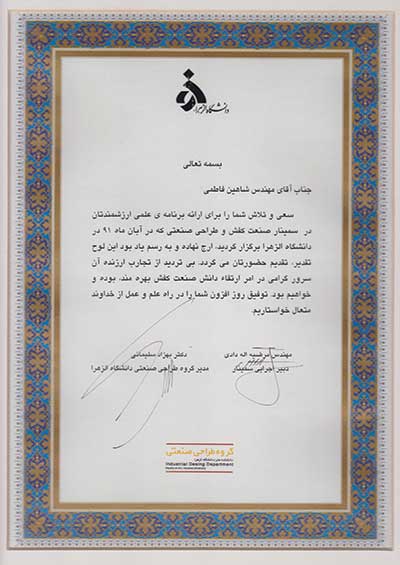 دانشگاه الزهرا
بسمه تعالی
جناب آقای مهندس شاهین فاطمی
سعی و تلاش شما را برای ارائه برنامه ی علمی ارزشمندتان
در سمینار صنعت کفش و طراحی صنعتی که در آبان ماه ۹۱ در
دانشگاه الزهرا برگزار گردید، ارج نهاده و به رسم یاد بود این لوح
تقدیر، تقدیم حضورتان می گردد. بی تردید از تجارب ارزنده آن
سرور گرامی در امر ارتقاء دانش صنعت کفش بهره مند، بوده و
خواهیم بود. توفیق روز افزون شما را در راه علم و عمل از خداوند
متعال خواستاریم.
مهندس مرضیه اله دادی
دبیر اجرایی سمینار
دکتر بهزاد سلیمانی
مدیر گروه طراحی صنعتی دانشگاه الزهرا
گروه طراحی صنعتی
Industrial Desing Department